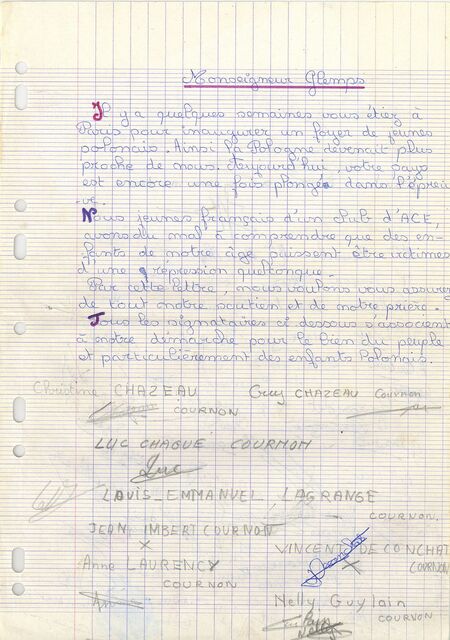 Monseigneur Glemps
Il y a quelques semaines vous étiez à
Paris pour inaugurer un foyer de jeunes
polonais. Ainsi la Pologne devenait plus
proche de nous. Aujourd'hui, votre pays
est encore une fois plongé dans l'épreu
ve.
Nous jeunes français d'un club d'ACE,
avons du mal à comprendre que des en-
fants de notre âge puissent être victimes
d'une répression quelconque.
Par cette lettre, nous voulons vous assurer
de tout notre soutien et de notre prière.
Tous les signataires ci dessous s'associent
à notre démarche pour le bien du peuple
et particulièrement des enfants Polonais.
Christine CHAZEAU Guy CHAZEAU Cournon
COURNON
LUC CHAGUÉ COURNON
Luc
LOUIS_EMMANUEL LAGRANGE
COURNON.
JEAN IMBERT COURNON
VINCENT DE CONCHAT
COURNON
Anne LAURENCY
COURNON
Nelly Guylain
COURNON
Nelly